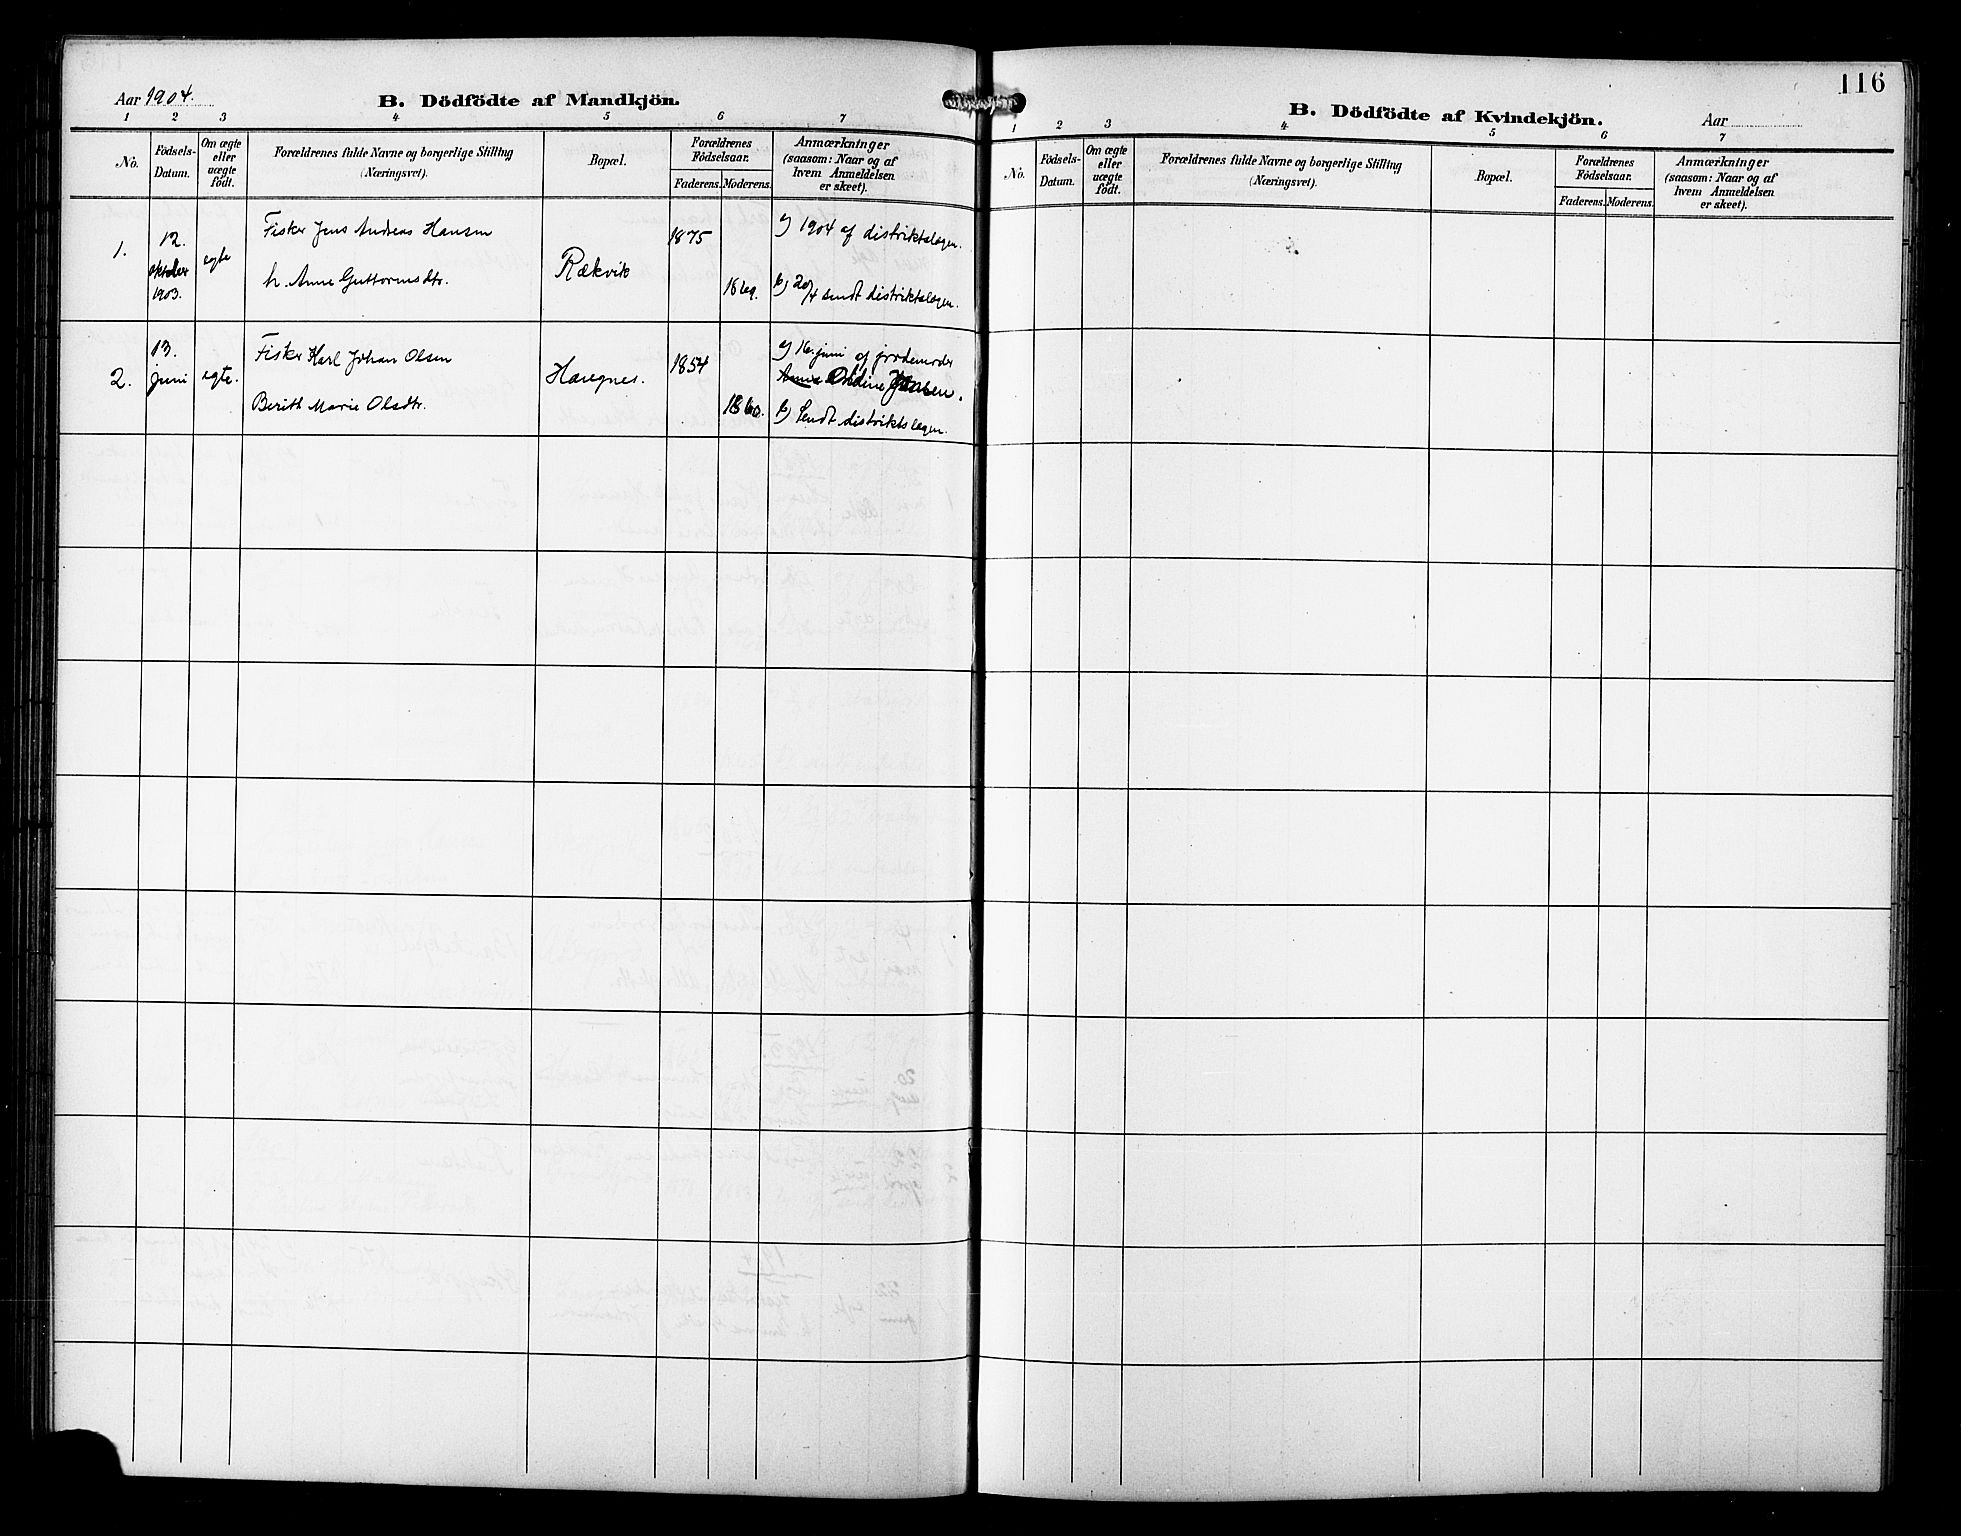 Aar 1904.
B. Dödfödte af Mandkjön.
1 2 3 4 5 6 7
No.
Födsels-
Datum.
Om ægte
eller
uægte
födt.
Forældrenes fulde Navne og borgerlige Stilling
(Næringsvei).
Bopæl.
Forældrenes
Födselsaar.
Faderens. Moderens.
Anmærkninger
(saasom: Naar og af
hvem Anmeldelsen
er skeet).
1.
12.
oktober
1903.
egte
Fisker Jens Andreas Hansen
h. Anne Guttormsdtr.
Rækvik
1875
1869.
a) 1904 af distriktslægen.
b) 20/4 sendt distriktslægen.
2.
13.
juni
egte.
Fisker Karl Johan Olsen
Berith Marie Olsdtr.
Hasegnes.
1854
1860.
a) 16. juni af jordemoder
Anna Ondine Jensen.
b) Sendt distriktslægen.
116
B. Dödfödte af Kvindekjön.
Aar
1 2 3 4 5 6 7
No.
Födsels-
Datum.
Om ægte
eller
uægte
födt.
Forældrenes fulde Navne og borgerlige Stilling
(Næringsvei).
Bopæl.
Forældrenes
Födselsaar.
Faderens. Moderens.
Anmærkninger
(saasom: Naar og af
hvem Anmeldelsen
er skeet).